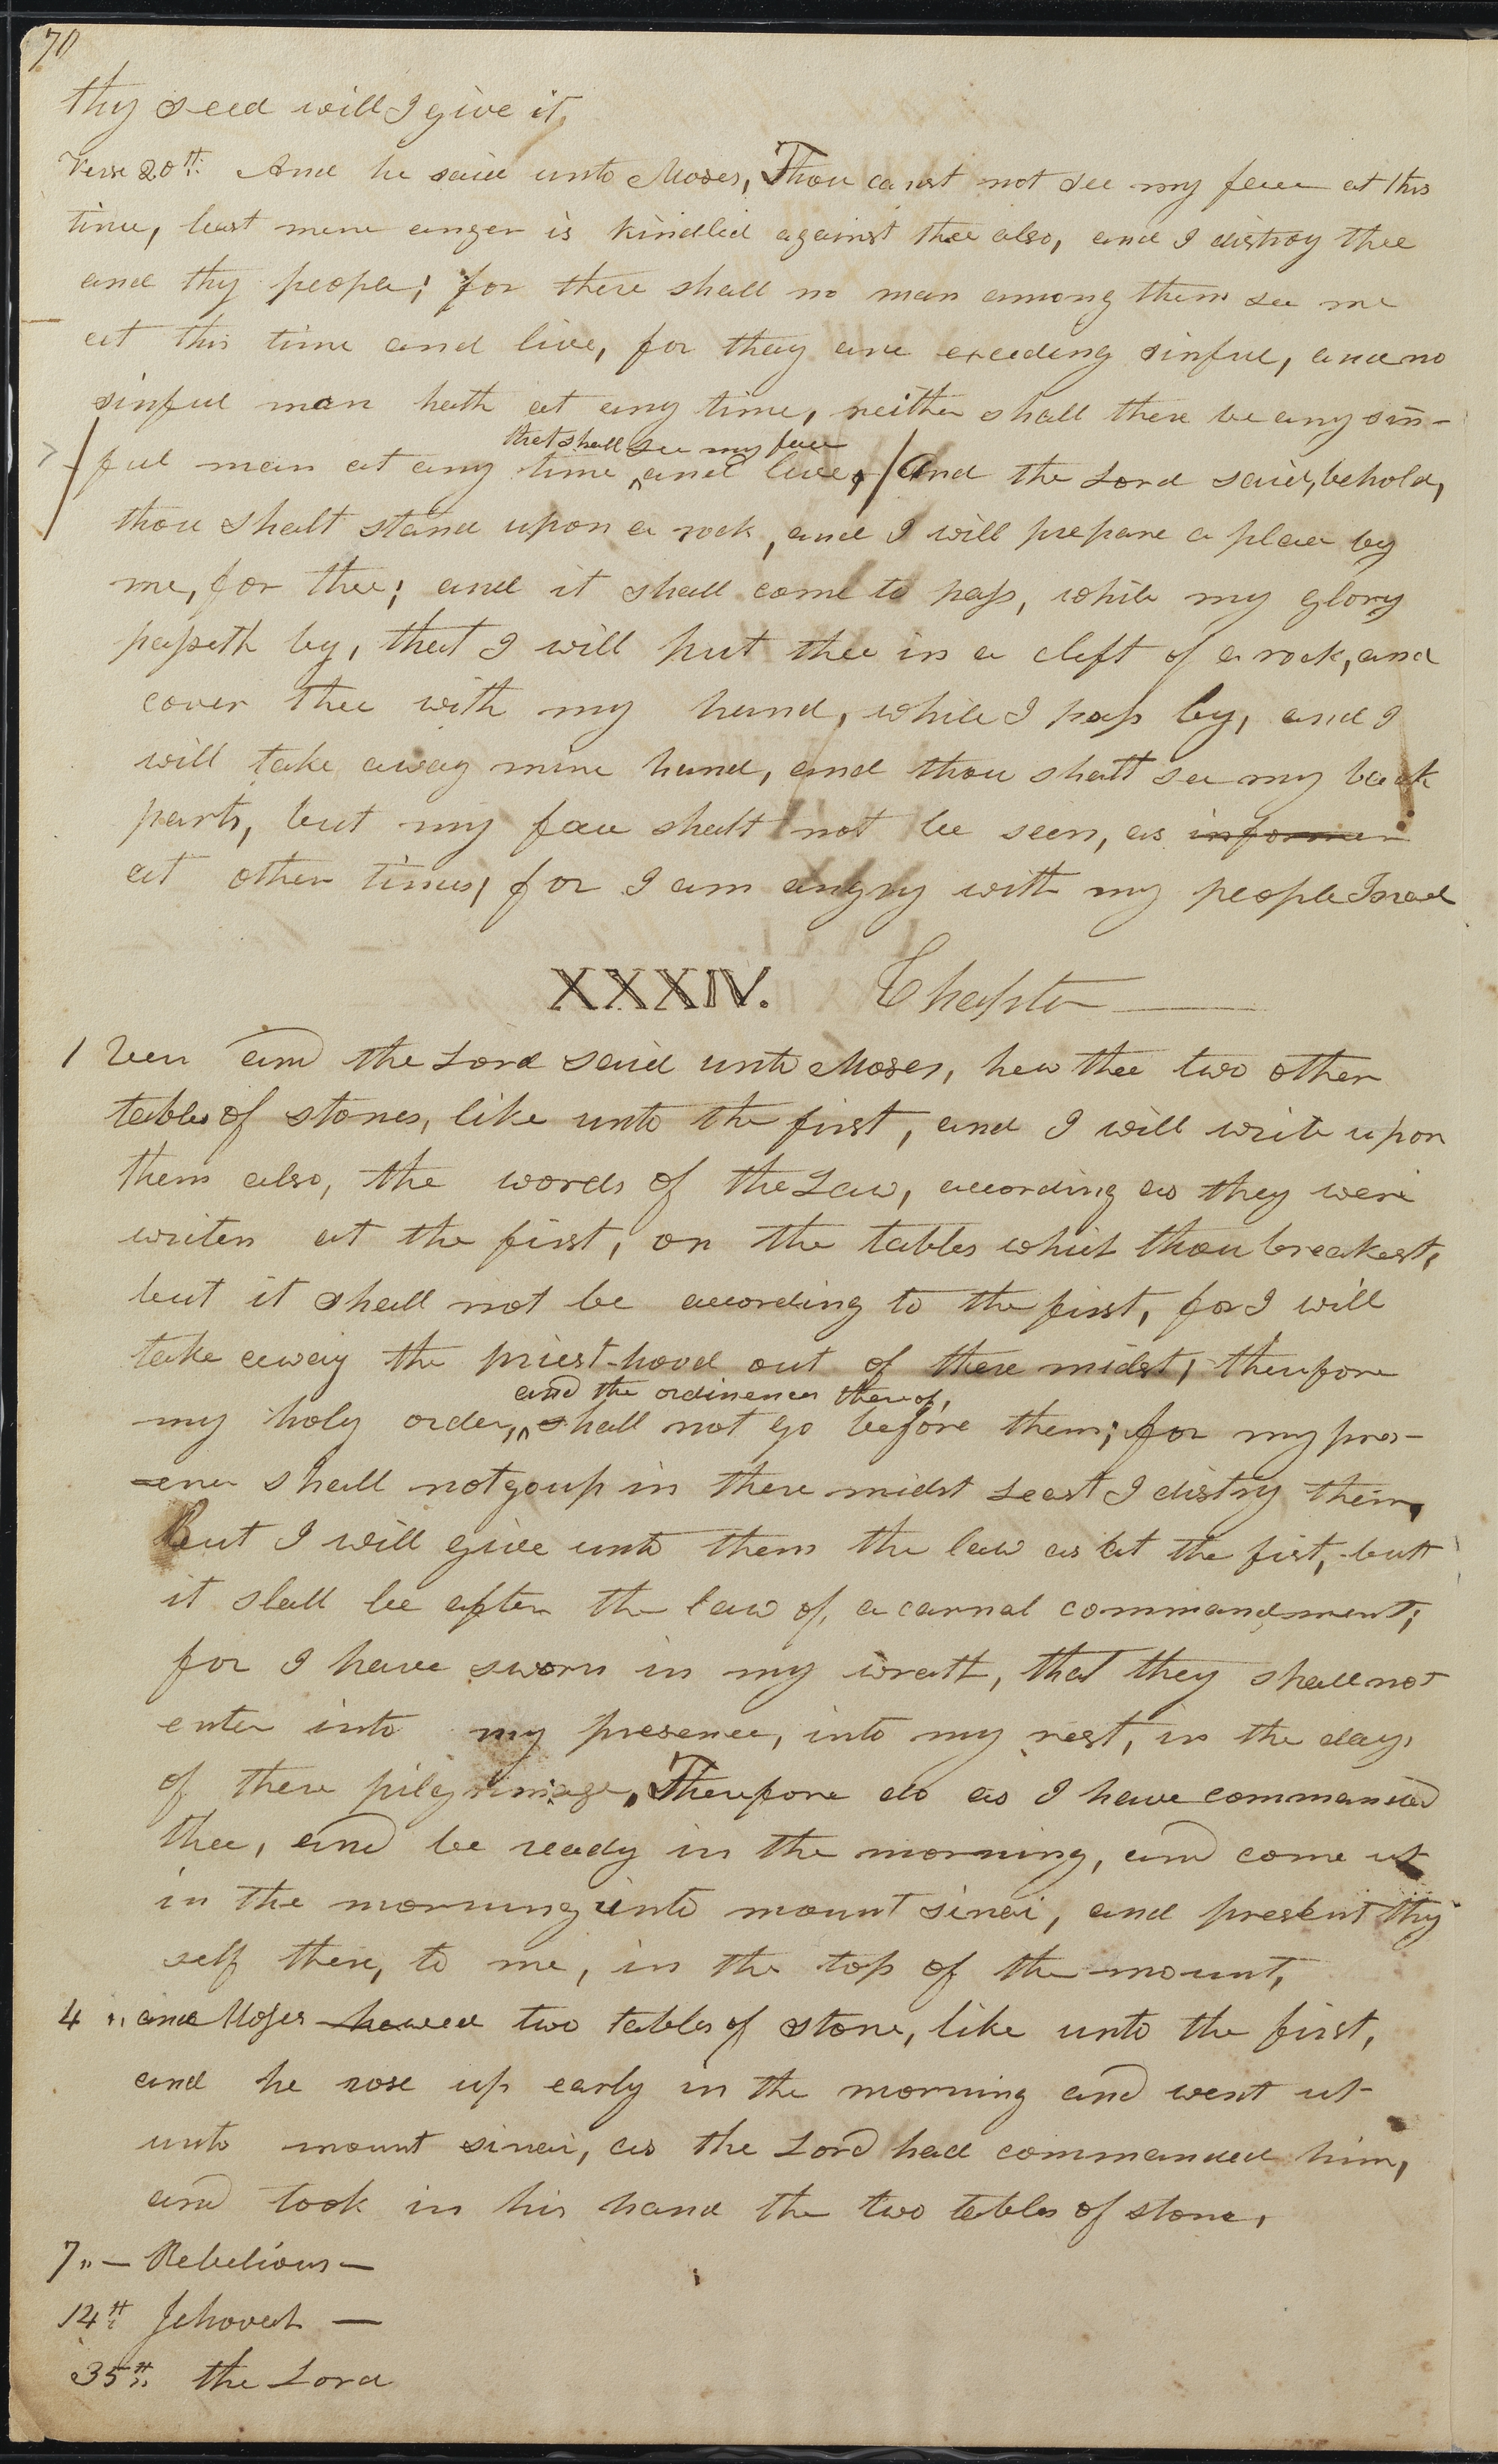 70
thy seed will I give it,
Verse 20th And he said unto Moses, Thou canst not see my face at this
time, least mine anger is kindled against thee also, and I distroy thee
and thy people; for there shall no man among them see me
at this time and live, for they are exceeding sinful, and no
sinful man hath at any time, neither shall there be any sin-
that shall see my face
ful man at any time ‸ and live, And the Lord said, behold,
thou shalt stand upon a rock, and I will prepare a place by
me, for thee; and it shall come to pass, while my glory
passeth by, that I will put thee in a cleft of a rock, and
cover thee with my hand, while I pass by, and I
will take away mine hand, and thou shalt see my back
parts, but my face shall not be seen, as informer
at other times; for I am angry with my people Israel
XXXIV. Chapter
1 Vers and the Lord said unto Moses, hew thee two other
tables of stones, like unto the first, and I will write upon
them also, the words of the Law, according as they were
writen at the first, on the tables which thou breakest,
but it shall not be according to the first, for I will
take away the priest-hood out of there midst; therefore
and the ordinences thereof,
my holy order, ‸ shall not go before them; for my pres-
ence shall not go up in there midst Least I distry them,
But I will give unto them the law as at the fist, but
it shall be after the law of, a carnal commandment;
for I have sworn in my wrath, that they shall not
enter into my presence, into my rest, in the days
of there pilgrimage, Therefore do as I have commanded
thee, and be ready in the morning, and come up
in the morning unto mount sinai, and present thy
self there, to me, in the top of the mount,
4 " and Moses hewed two tables of stone, like unto the first,
and he rose up early in the morning and went up
unto mount sinai, as the Lord had commanded him,
and took in his hand the two tables of stone,
7 " — Rebelious —
14th Jehovah —
35th the Lord